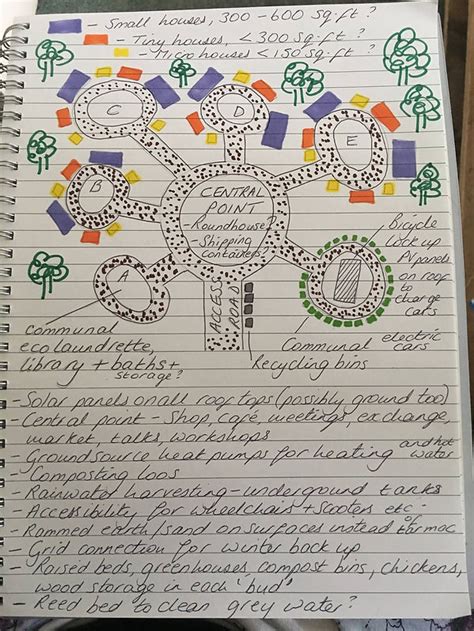 - Small houses, 300 - 600 sq.ft?
- Tiny houses, < 300 sq.ft?
- Micro houses < 150 sq.ft?
C
D
E
B
A
CENTRAL
POINT
- Roundhouse?
- Shipping
containers
ACCESS
ROAD
Bicycle
lock up
PV panels
on roof
to
charge
cars
Communal electric
cars
Recycling bins
communal
eco laundrette,
library + baths +
storage?
- Solar panels on all rooftops (possibly ground too)
- Central point - Shop, café, meetings, exchange,
market, talks, workshops
- Groundsource heat pumps for heating and hot water
- Composting loos
- Rainwater harvesting - underground tanks
- Accessibility for wheelchairs + scooters etc
- Rammed earth/sand on surfaces instead of tarmac
- Grid connection for winter back up
- Raised beds, greenhouses, compost bins, chickens,
wood storage in each 'bud'
- Reed bed to clean grey water?